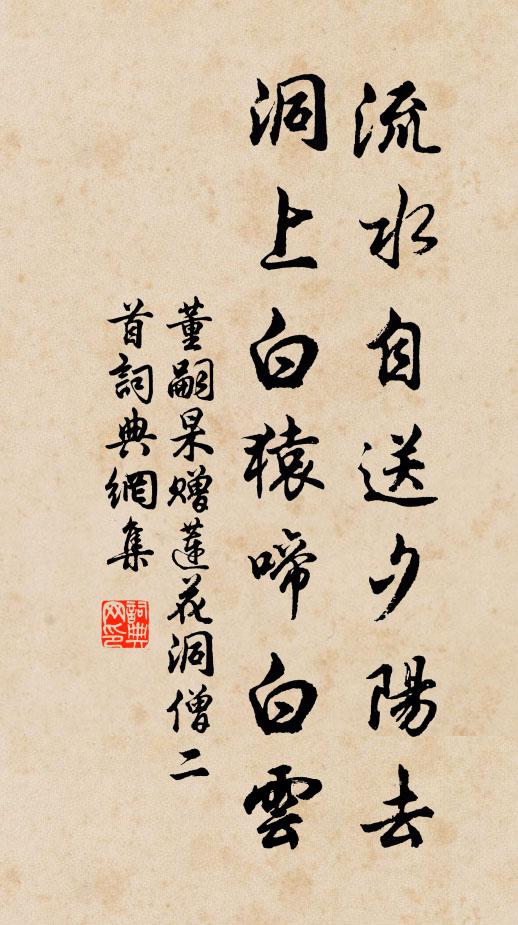 流水自送夕陽去
洞上白猿啼白雲
董嗣杲赠蓮花洞僧二
首詞典網集
詞典
网印